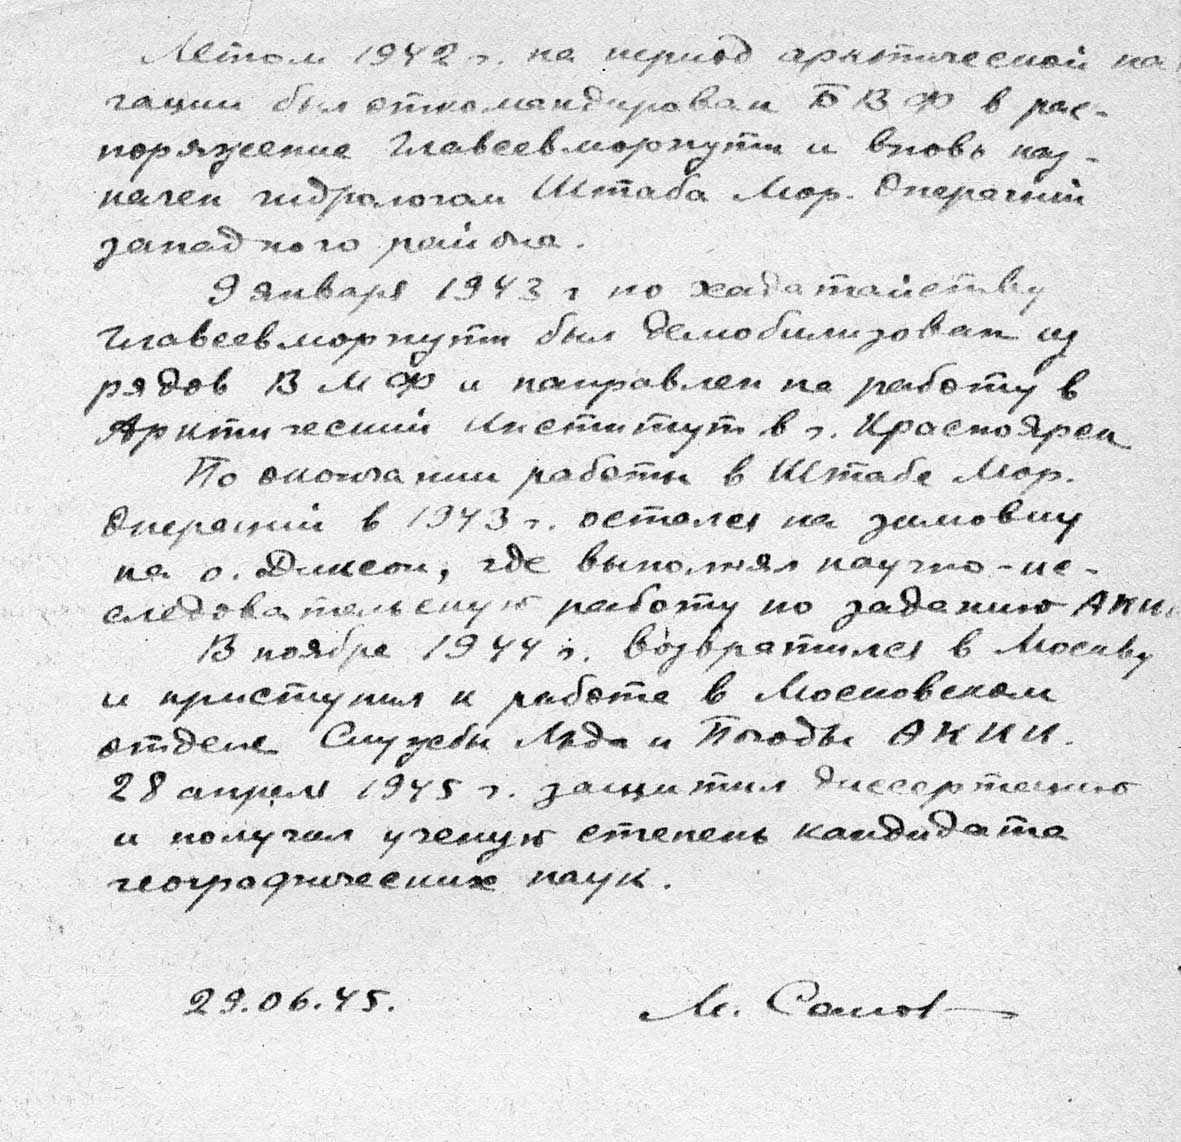 Летом 1942 г. на период арктической на
гации был откомандирован Б В Ф в рас-
поряжение Главсевморпути и вновь наз-
начен гидрологом Штаба Мор. Операций
западного района.
9 января 1943 г по хадатайству
Главсевморпути был демобилизован из
рядов В М Ф и направлен на работу в
Арктический Институт в г. Красноярск
По окончании работы в Штабе Мор.
Операций в 1943 г. остался на зимовку
на о. Диксон, где выполнял научно-ис-
следовательскую работу по заданию АНИИ
В ноябре 1944 г. возвратился в Москву
и приступил к работе в Московском
отделе Службы Льда и Погоды АНИИ.
28 апреля 1945 г. защитил диссертацию
и получил ученую степень кандидата
географических наук.
29.06.45.
М. Сомов